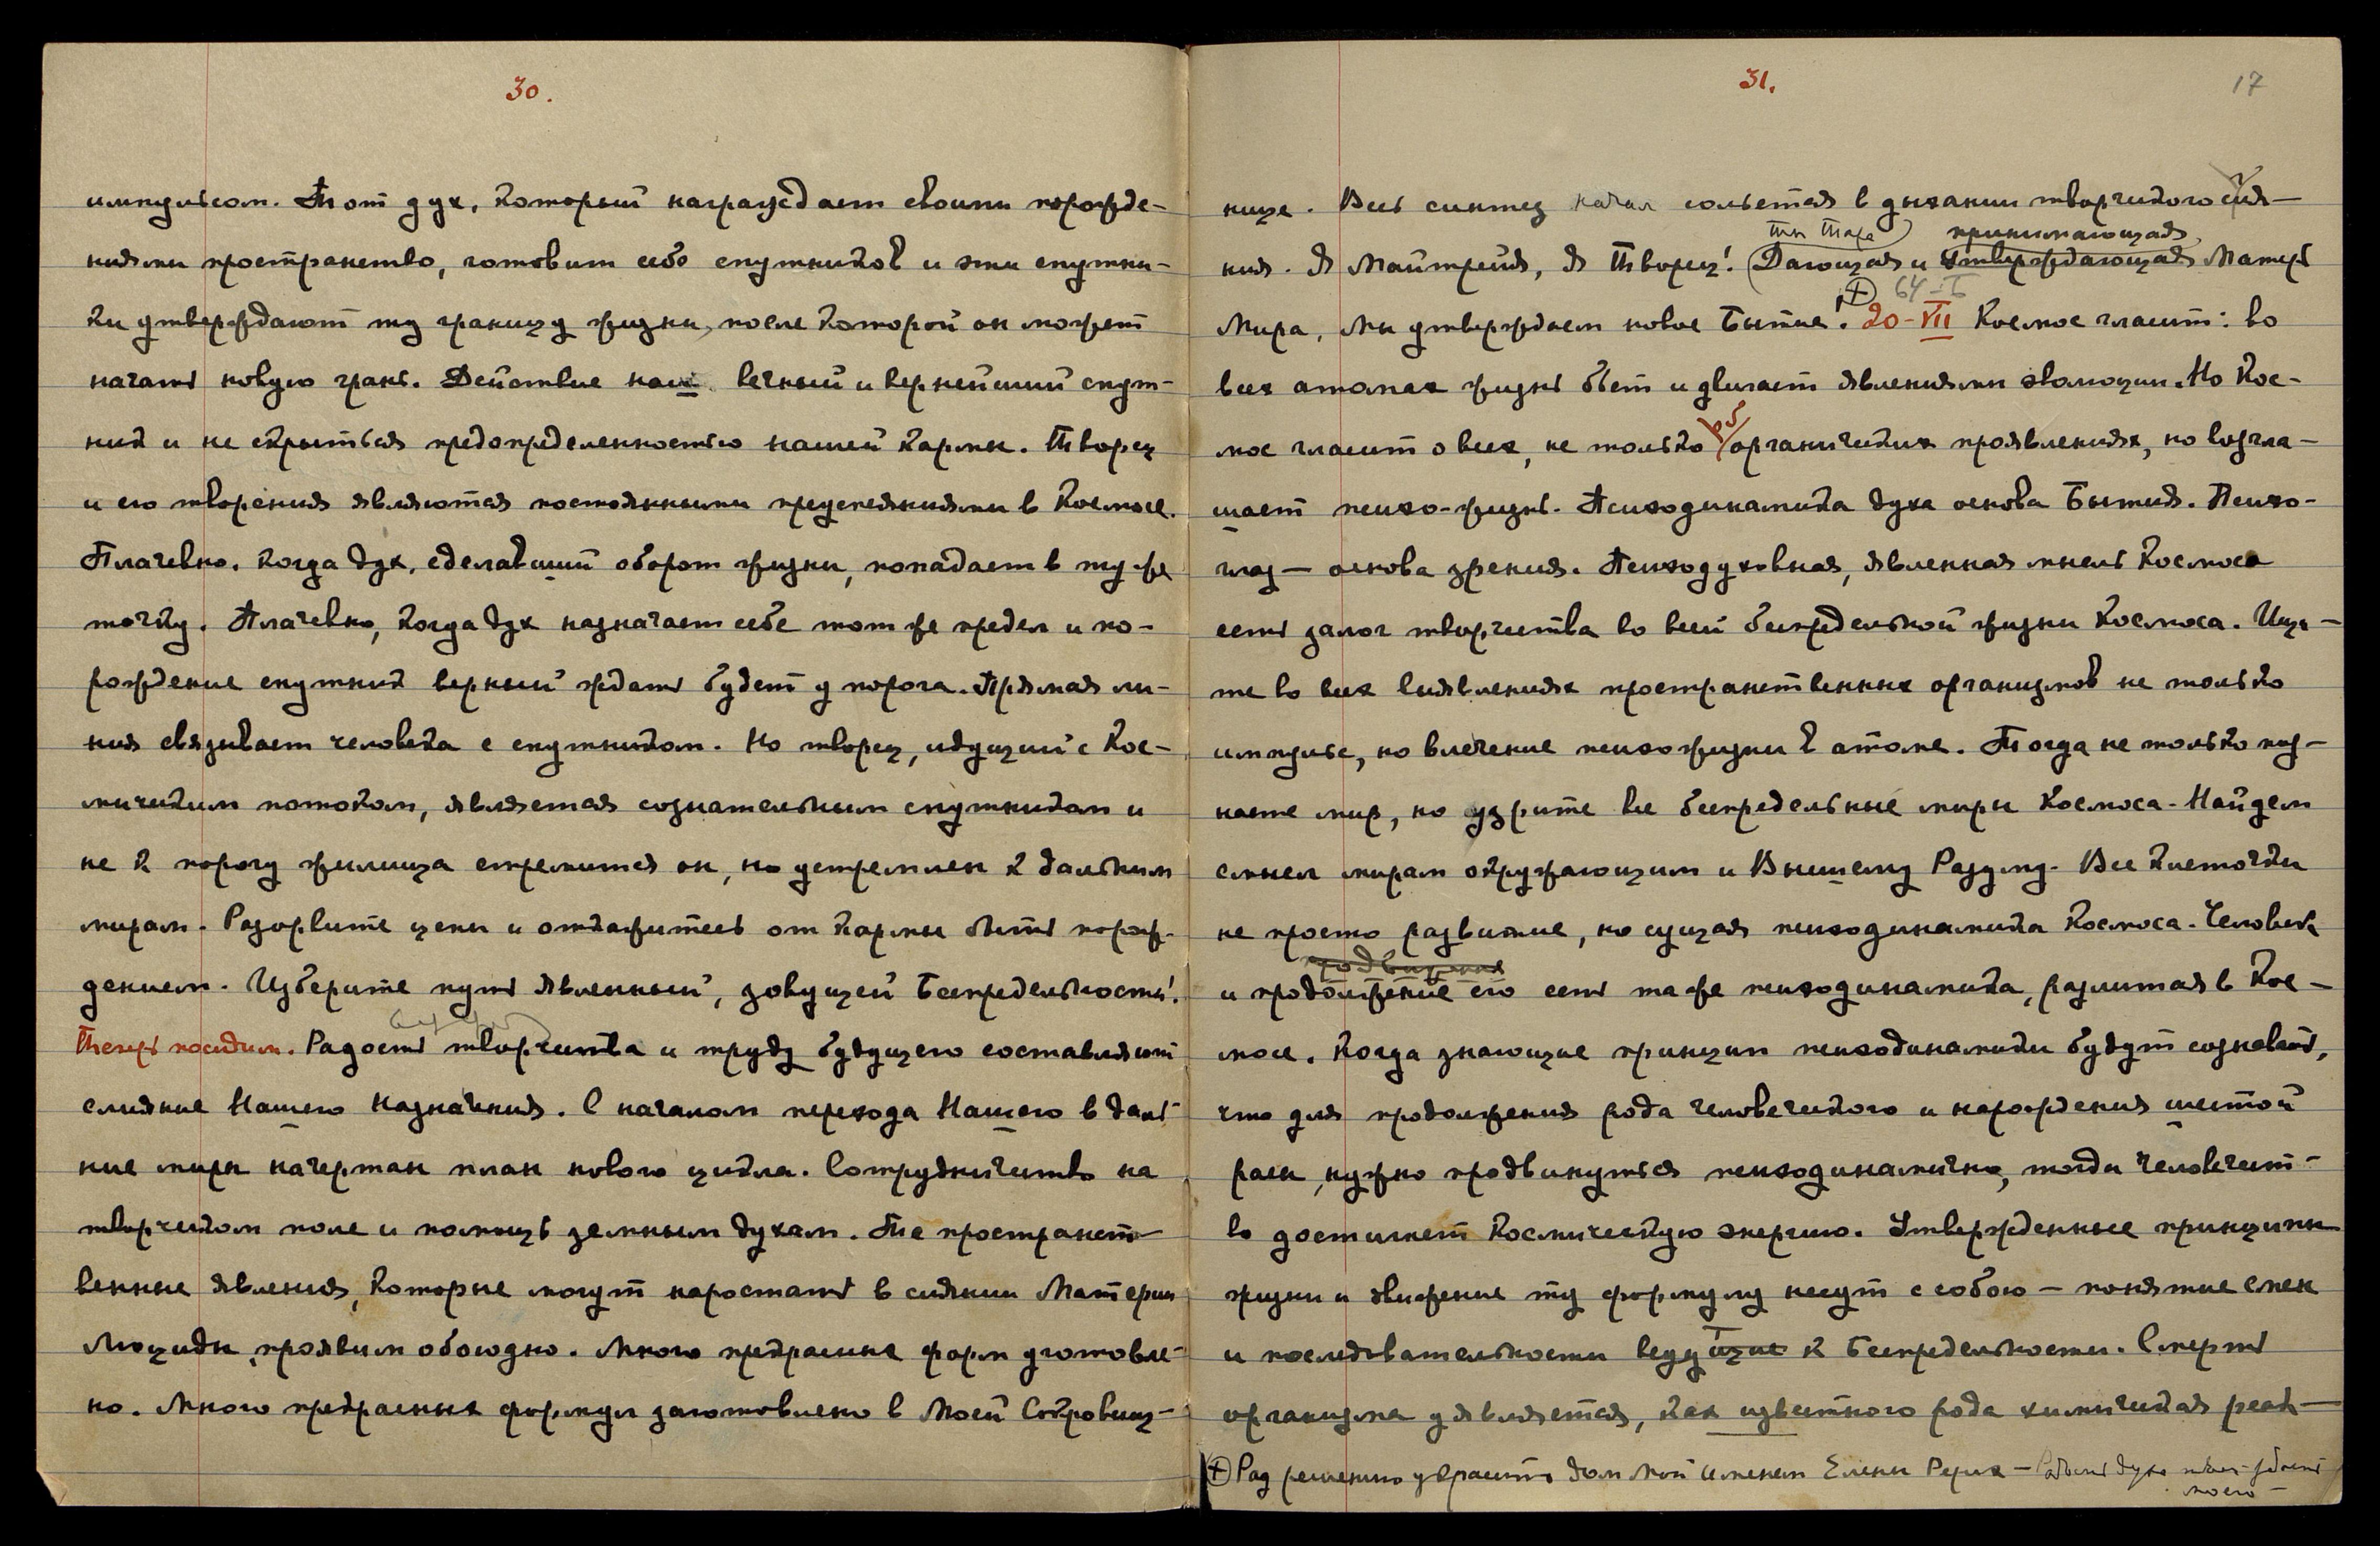 30.
импульсом. Тот дух, который награждает своими порожде-
ниями пространство, готовит себе спутников и эти спутни-
ки утверждают ту границу жизни, после которой он может
начать новую грань. Действие наш вечный и вернейший спут-
ник и не скрыться предопределенностью нашей кармы. Творец
и его творения являются постоянными преуспеяниями в Космосе.
Плачевно, когда дух, сделавший оборот жизни, попадает в ту же
точку. Плачевно, когда дух назначает себе тот же предел и по-
рождение спутник верный ждать будет у порога. Прямая ли-
ния связывает человека с спутником. Но творец, идущий с Кос-
мическим потоком, является сознательным спутником и
не к порогу жилища стремится он, но устремлен к дальним
мирам. Разорвите цепи и откажитесь от кармы быть порож-
дением. Изберите путь явленный, зовущей Беспредельности!
Теперь посидим. Радость творчества и труды будущего составляют
слияние Нашего Назначения. С началом перехода Нашего в даль-
ние миры начертан план нового цикла. Сотрудничество на
творческом поле и помощь земным духам. Те пространст-
венные явления, которые могут наростать в сиянии Материи
Люциды, проявим обоюдно. Много прекрасных форм уготовле-
но. Много прекрасных формул заготовлено в Моей Сокровищ-
31.
17
нице. Весь синтез начал сольется в дыхании творческого сия-
ты Тара принимающая
ния. Я Майтрейя, Я Творец! (Дающая и утверждающая Матерь
64-Б
Мира, Мы утверждаем новое Бытие! ⊕ 20-VII Космос гласит: во
всех атомах жизнь бьет и двигает явлениями эволюции. Но Кос-
мос гласит о всех, не только об органических проявлениях, но возгла-
шает психо-жизнь. Психодинамика духа основа Бытия. Психо-
глаз — основа зрения. Психодуховная, явленная мысль Космоса
есть залог творчества во всей беспредельной жизни Космоса. Ищи-
те во всех выявлениях пространственных организмов не только
импульс, но влечение психожизни в атоме. Тогда не только поз-
наете мир, но узрите все беспредельные миры Космоса. Найдем
смысл мирам окружающим и Высшему Разуму. Все клеточки
не просто развитие, но сущая психодинамика Космоса. Человек
продвижения
и продолжение его есть та же психодинамика, разлитая в Кос-
мосе. Когда знающие принцип психодинамики будут сознавать,
что для продолжения рода человеческого и нарождения шестой
расы, нужно продвинуться психодинамично, тогда человечест-
во достигнет космическую энергию. Утвержденные принципы
жизни и движение ту формулу несут с собою — понятие смен
и последовательности ведущие к Беспредельности. Смерть
организма уявляется, как известного рода химическая реак-
⊕ Рад решению украсить дом Мой именем Елены Рерих — Радость духа
моего —